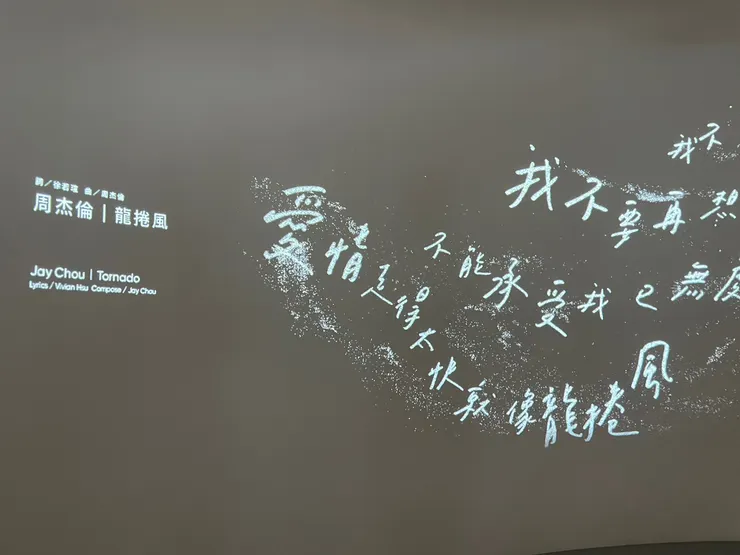 詞／徐若瑄 曲／周杰倫
周杰倫 | 龍捲風
Jay Chou | Tornado
Lyrics / Vivian Hsu Compose / Jay Chou
愛情走得太快就像龍捲風
不能承受我已無
我不要再想
我不